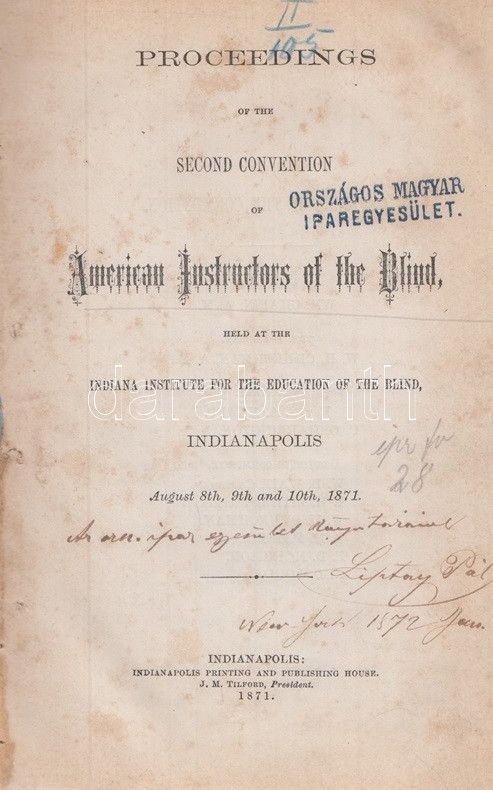 II
105
PROCEEDINGS
OF THE
SECOND CONVENTION
ORSZÁGOS MAGYAR
IPAREGYESÜLET.
OF
American Instructors of the Blind,
HELD AT THE
INDIANA INSTITUTE FOR THE EDUCATION OF THE BLIND,
darabanth
INDIANAPOLIS
28
August 8th, 9th and 10th, 1871.
Az orsz. ipar egyesület könyvtárának
Liptay Pál
New York 1872 Jan.
INDIANAPOLIS:
INDIANAPOLIS PRINTING AND PUBLISHING HOUSE.
J. M. TILFORD, President.
1871.